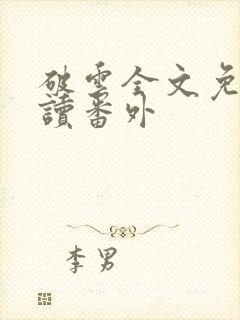 破雲全文免
讀番外
李男